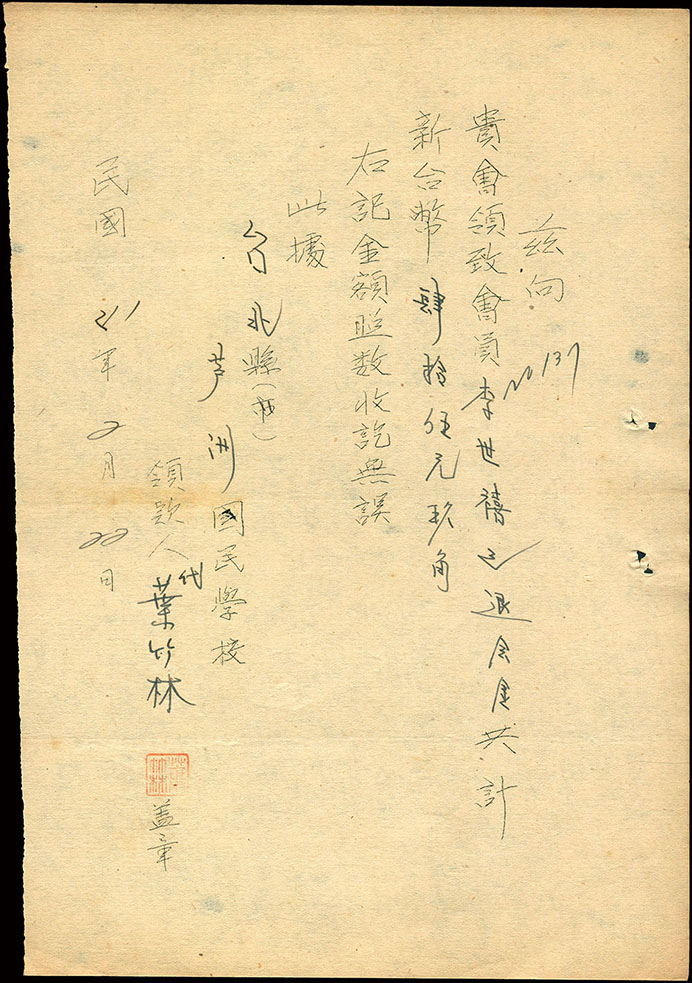 茲向
貴會領致會員李世禧之退会金共計
No 137
新台幣肆拾伍元玖角
右記金額照数收訖無誤
此據
台北縣(市)
芦洲國民学校
領款人代葉竹林 盖章
民國41年2月22日